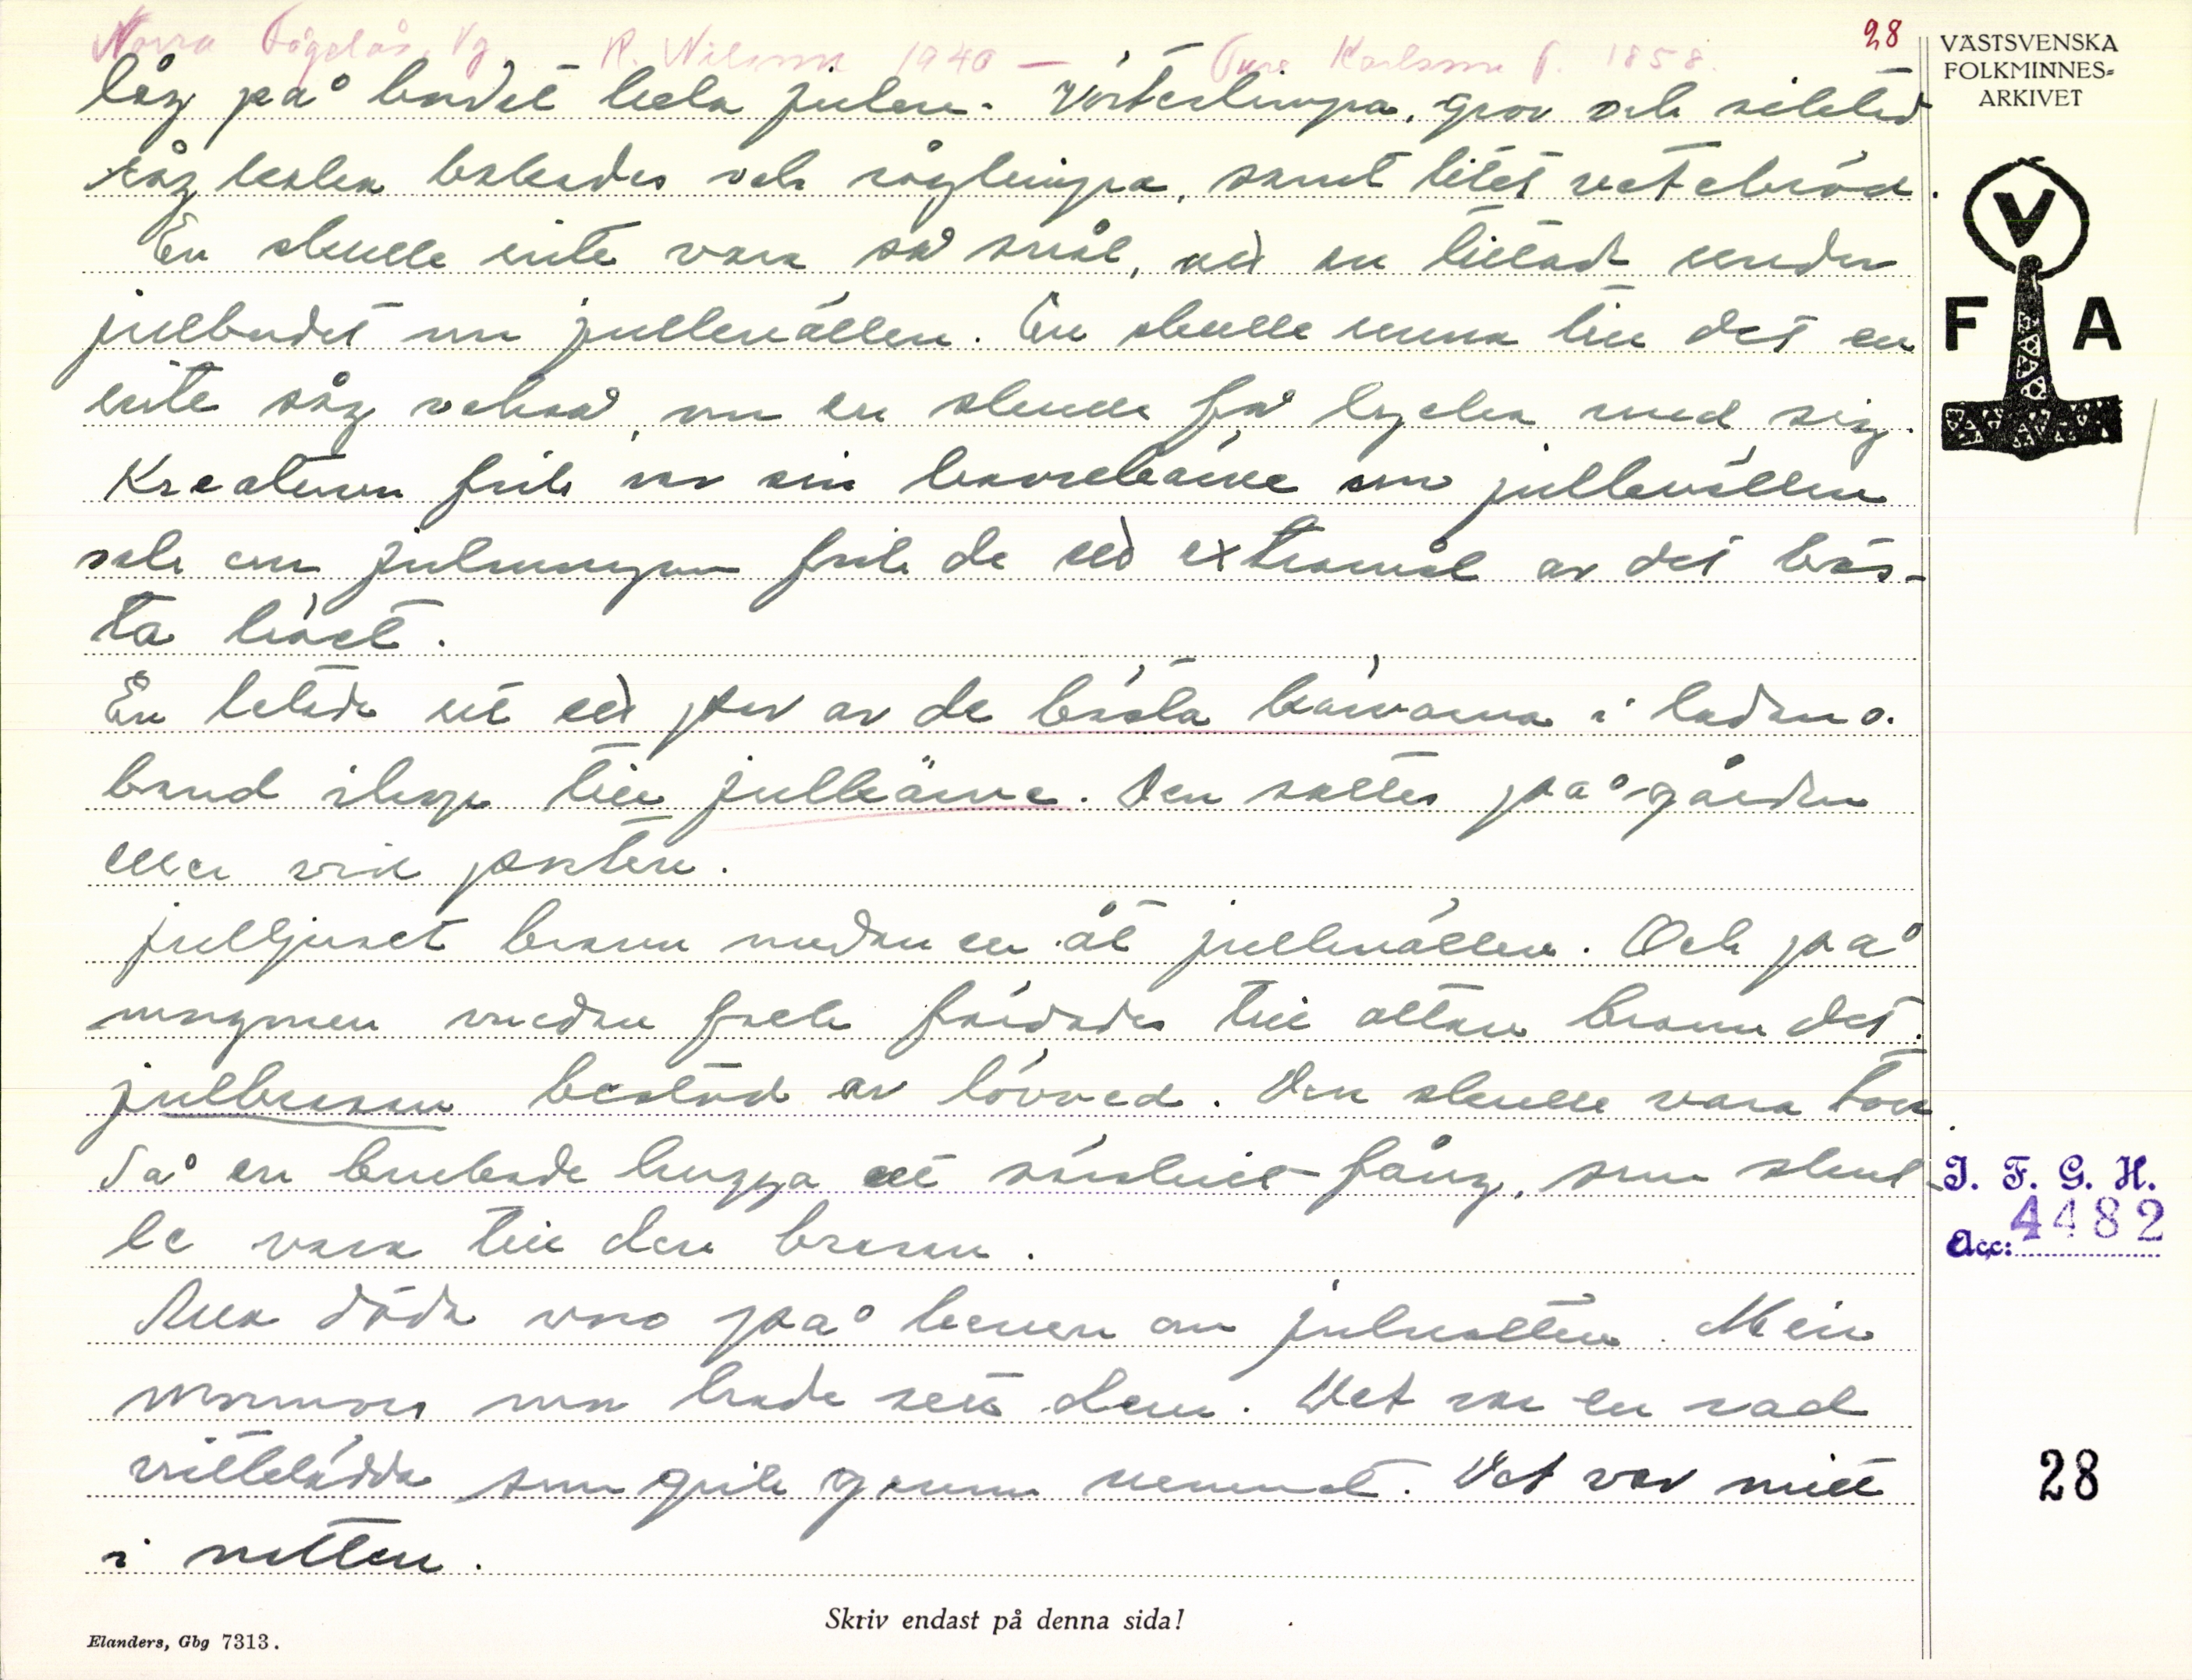 Norra Fågelås, Vg R. Nilsson 1940 — Ture Karlsson f. 1858. 28
VÄSTSVENSKA
FOLKMINNES-
ARKIVET
låg på bordet hela julen. Vörtelimpa, grov och siktad
råg kaka bakades och råglimpa, samt litet vetebröd.
En skulle inte vara så snål, att en tittad under
julbordet om julkvällen. En skulle unna till det en
inte såg också, om en skulle få lycka med sig.
Kreaturen fick var sin havrekärve om julkvällen
och om julmorgon fick de ett extramål av det bäs-
ta höet.
En letade ut ett par av de bästa kärvarna i ladan o.
band ihop till julkärve. Den sattes på gården
eller vid porten.
julljuset brann medan en åt julkvällen. Och på
morgonen medan folk färdades till ottan brann det.
julbrasan bestod av lövved. Den skulle vara torr.
Så en brukade hugga ett särskilt fång, som skul-
le vara till den brasan.
F A
V
I. F. G. H.
Acc: 4482
Alla döda voro på benen om julnatten. Min
mormors mor hade sett dem. Det var en rad
vitklädda som gick genom rummet. Det var mitt
i natten.
28
Skriv endast på denna sida!
Elanders, Gbg 7313.